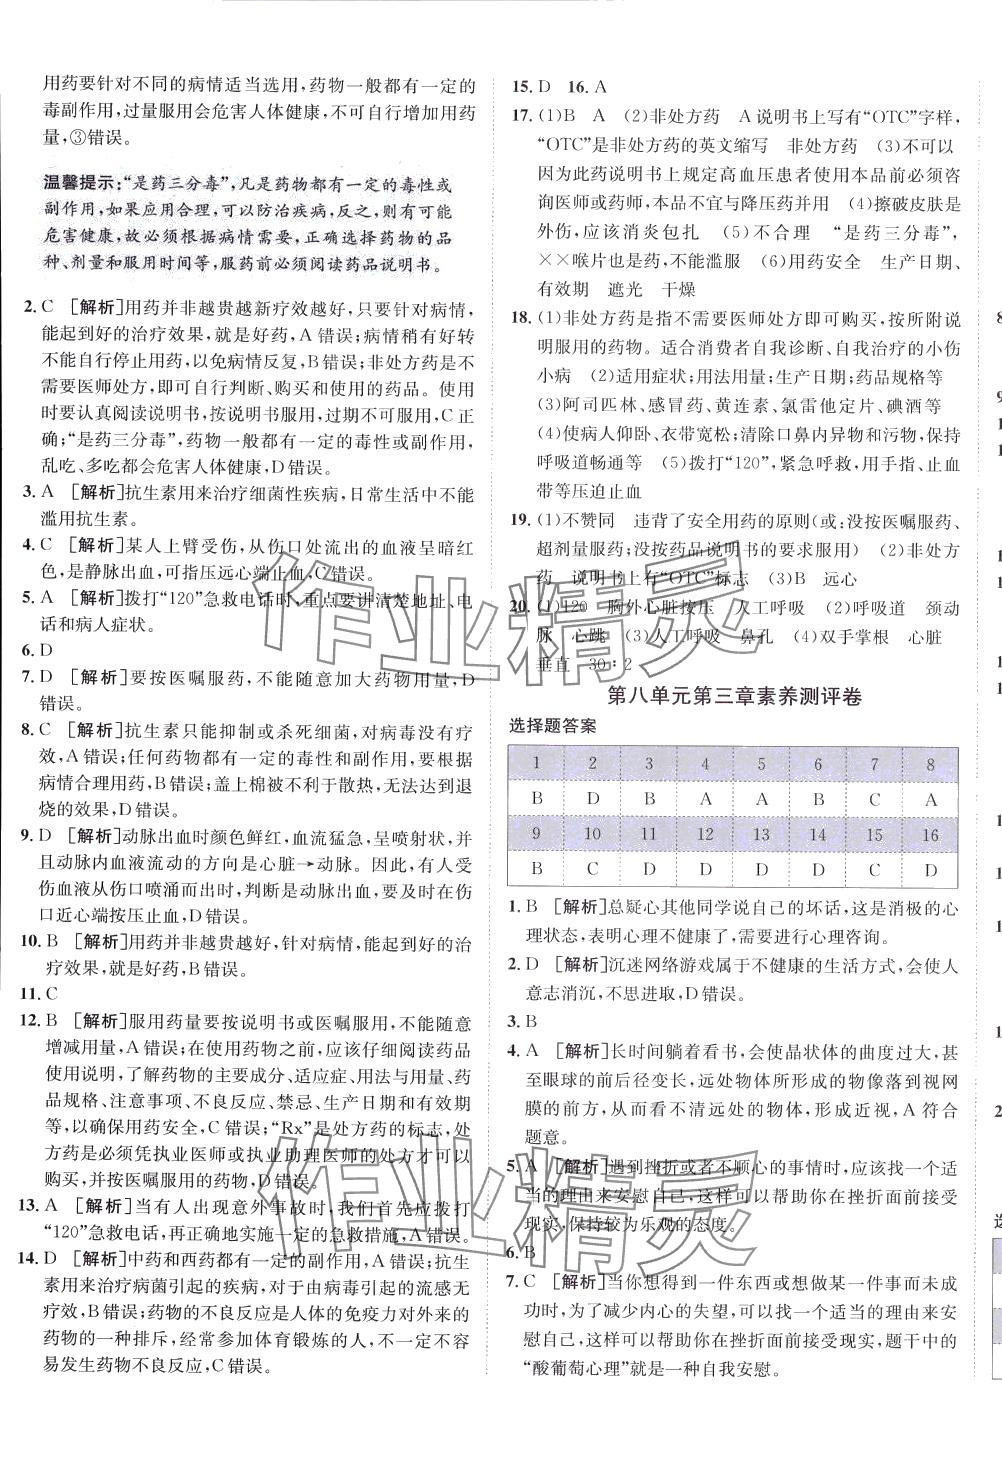 用药要针对不同的病情适当选用,药物一般都有一定的
毒副作用,过量服用会危害人体健康,不可自行增加用药
量,③错误。
温馨提示:“是药三分毒”,凡是药物都有一定的毒性或
副作用,如果应用合理,可以防治疾病,反之,则有可能
危害健康,故必须根据病情需要,正确选择药物的品
种、剂量和服用时间等,服药前必须阅读药品说明书。
2. C [解析]用药并非越贵越新疗效越好,只要针对病情,
能起到好的治疗效果,就是好药,A错误;病情稍有好转
不能自行停止用药,以免病情反复,B错误;非处方药是不
需要医师处方,即可自行判断、购买和使用的药品。使用
时要认真阅读说明书,按说明书服用,过期不可服用,C正
确;“是药三分毒”,药物一般都有一定的毒性或副作用,
乱吃、多吃都会危害人体健康,D错误。
3. A [解析]抗生素用来治疗细菌性疾病,日常生活中不能
滥用抗生素。
4. C [解析]某人上臂受伤,从伤口处流出的血液呈暗红
色,是静脉出血,可指压远心端止血,C错误。
5. A [解析]拨打“120”急救电话时,重点要讲清楚地址、电
话和病人症状。
6. D
7. D [解析]要按医嘱服药,不能随意加大药物用量,D
错误。
8. C [解析]抗生素只能抑制或杀死细菌,对病毒没有疗
效,A错误;任何药物都有一定的毒性和副作用,要根据
病情合理用药,B错误;盖上棉被不利于散热,无法达到退
烧的效果,D错误。
9. D [解析]动脉出血时颜色鲜红,血流猛急,呈喷射状,并
且动脉内血液流动的方向是心脏→动脉。因此,有人受
伤血液从伤口喷涌而出时,判断是动脉出血,要及时在伤
口近心端按压止血,D错误。
10. B [解析]用药并非越贵越好,针对病情,能起到好的治
疗效果,就是好药,B错误。
11. C
12. B [解析]服用药量要按说明书或医嘱服用,不能随意
增减用量,A错误;在使用药物之前,应该仔细阅读药品
使用说明,了解药物的主要成分、适应症、用法与用量、药
品规格、注意事项、不良反应、禁忌、生产日期和有效期
等,以确保用药安全,C错误;“Rx”是处方药的标志,处
方药是必须凭执业医师或执业助理医师的处方才可以
购买,并按医嘱服用的药物,D错误。
13. A [解析]当有人出现意外事故时,我们首先应拨打
“120”急救电话,再正确地实施一定的急救措施,A错误。
14. D [解析]中药和西药都有一定的副作用,A错误;抗生
素用来治疗病菌引起的疾病,对于由病毒引起的流感无
疗效,B错误;药物的不良反应是人体的免疫力对外来的
药物的一种排斥,经常参加体育锻炼的人,不一定不容
易发生药物不良反应,C错误。
15. D 16. A
17. (1)B A (2)非处方药 A说明书上写有“OTC”字样,
“OTC”是非处方药的英文缩写 非处方药 (3)不可以
因为此药说明书上规定高血压患者使用本品前必须咨
询医师或药师,本品不宜与降压药并用 (4)擦破皮肤是
外伤,应该消炎包扎 (5)不合理 “是药三分毒”,
××喉片也是药,不能滥服 (6)用药安全 生产日期、
有效期 遮光 干燥
18. (1)非处方药是指不需要医师处方即可购买,按所附说
明服用的药物。适合消费者自我诊断、自我治疗的小伤
小病 (2)适用症状;用法用量;生产日期;药品规格等
(3)阿司匹林、感冒药、黄连素、氯雷他定片、碘酒等
(4)使病人仰卧、衣带宽松;清除口鼻内异物和污物,保持
呼吸道畅通等 (5)拨打“120”,紧急呼救,用手指、止血
带等压迫止血
19. (1)不赞同 违背了安全用药的原则(或:没按医嘱服药、
超剂量服药;没按药品说明书的要求服用) (2)非处方
药 说明书上有“OTC”标志 (3)B 远心
20. (1)120 胸外心脏按压 人工呼吸 (2)呼吸道 颈动
脉 心跳 (3)人工呼吸 鼻孔 (4)双手掌根 心脏
垂直 30∶2
第八单元第三章素养测评卷
选择题答案
1 2 3 4 5 6 7 8
B D B A A B C A
9 10 11 12 13 14 15 16
B C D D D D C D
1. B [解析]总疑心其他同学说自己的坏话,这是消极的心
理状态,表明心理不健康了,需要进行心理咨询。
2. D [解析]沉迷网络游戏属于不健康的生活方式,会使人
意志消沉,不思进取,D错误。
3. B
4. A [解析]长时间躺着看书,会使晶状体的曲度过大,甚
至眼球的前后径变长,远处物体所形成的物像落到视网
膜的前方,从而看不清远处的物体,形成近视,A符合
题意。
5. A [解析]遇到挫折或者不顺心的事情时,应该找一个适
当的理由来安慰自己,这样可以帮助你在挫折面前接受
现实,保持较为乐观的态度。
6. B
7. C [解析]当你想得到一件东西或想做某一件事而未成
功时,为了减少内心的失望,可以找一个适当的理由来安
慰自己,这样可以帮助你在挫折面前接受现实,题干中的
“酸葡萄心理”就是一种自我安慰。
作业精灵
作业精灵